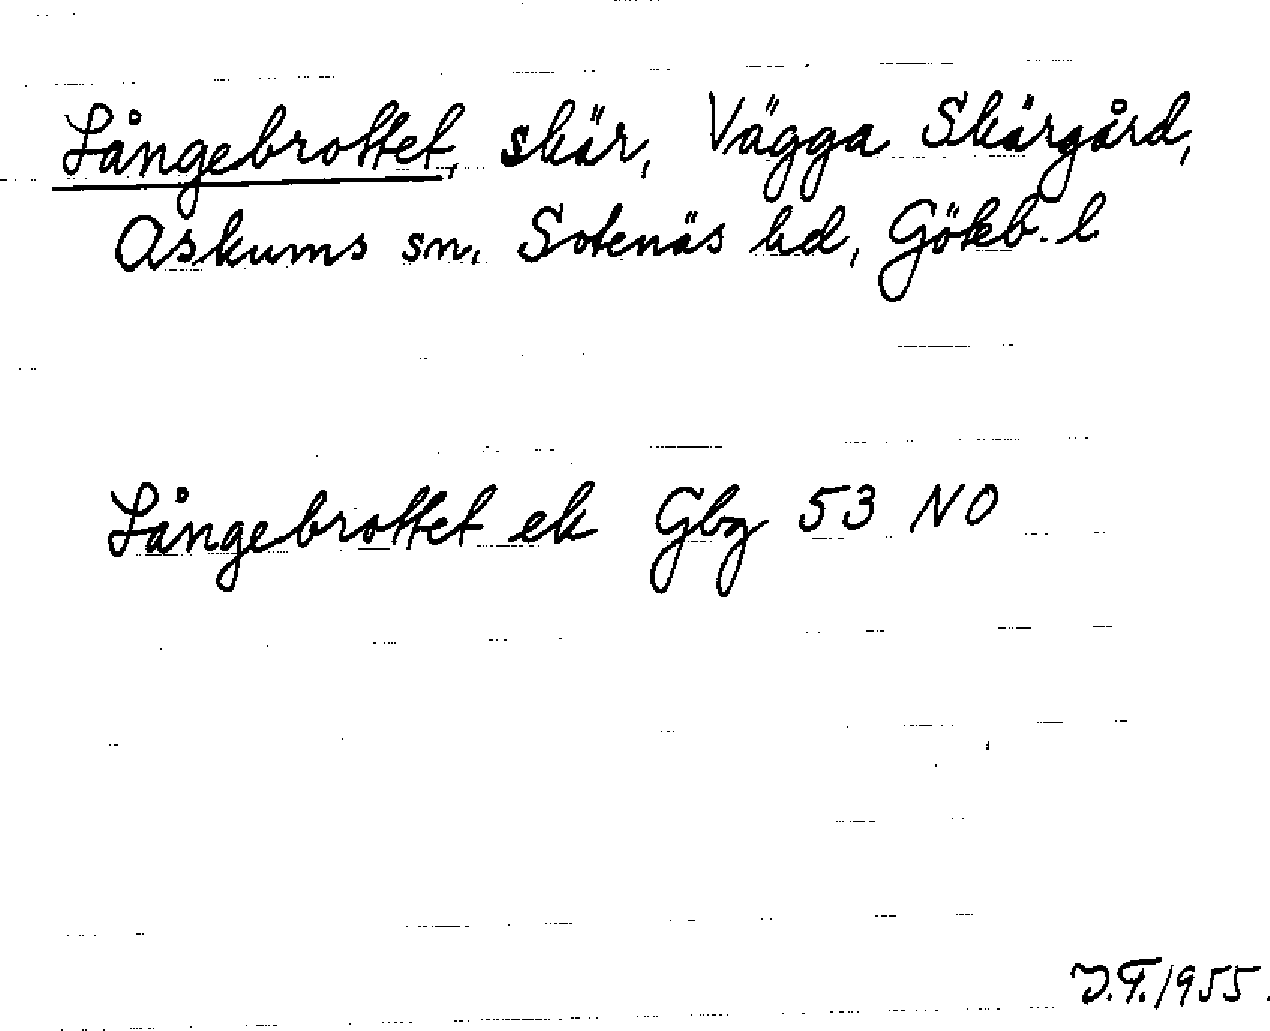 Långebrottet, skär, Vägga Skärgård,
Askums sn, Sotenäs hd, Gökb. l
Långebrottet ek Gbg 53 NO
J.T. 1955.